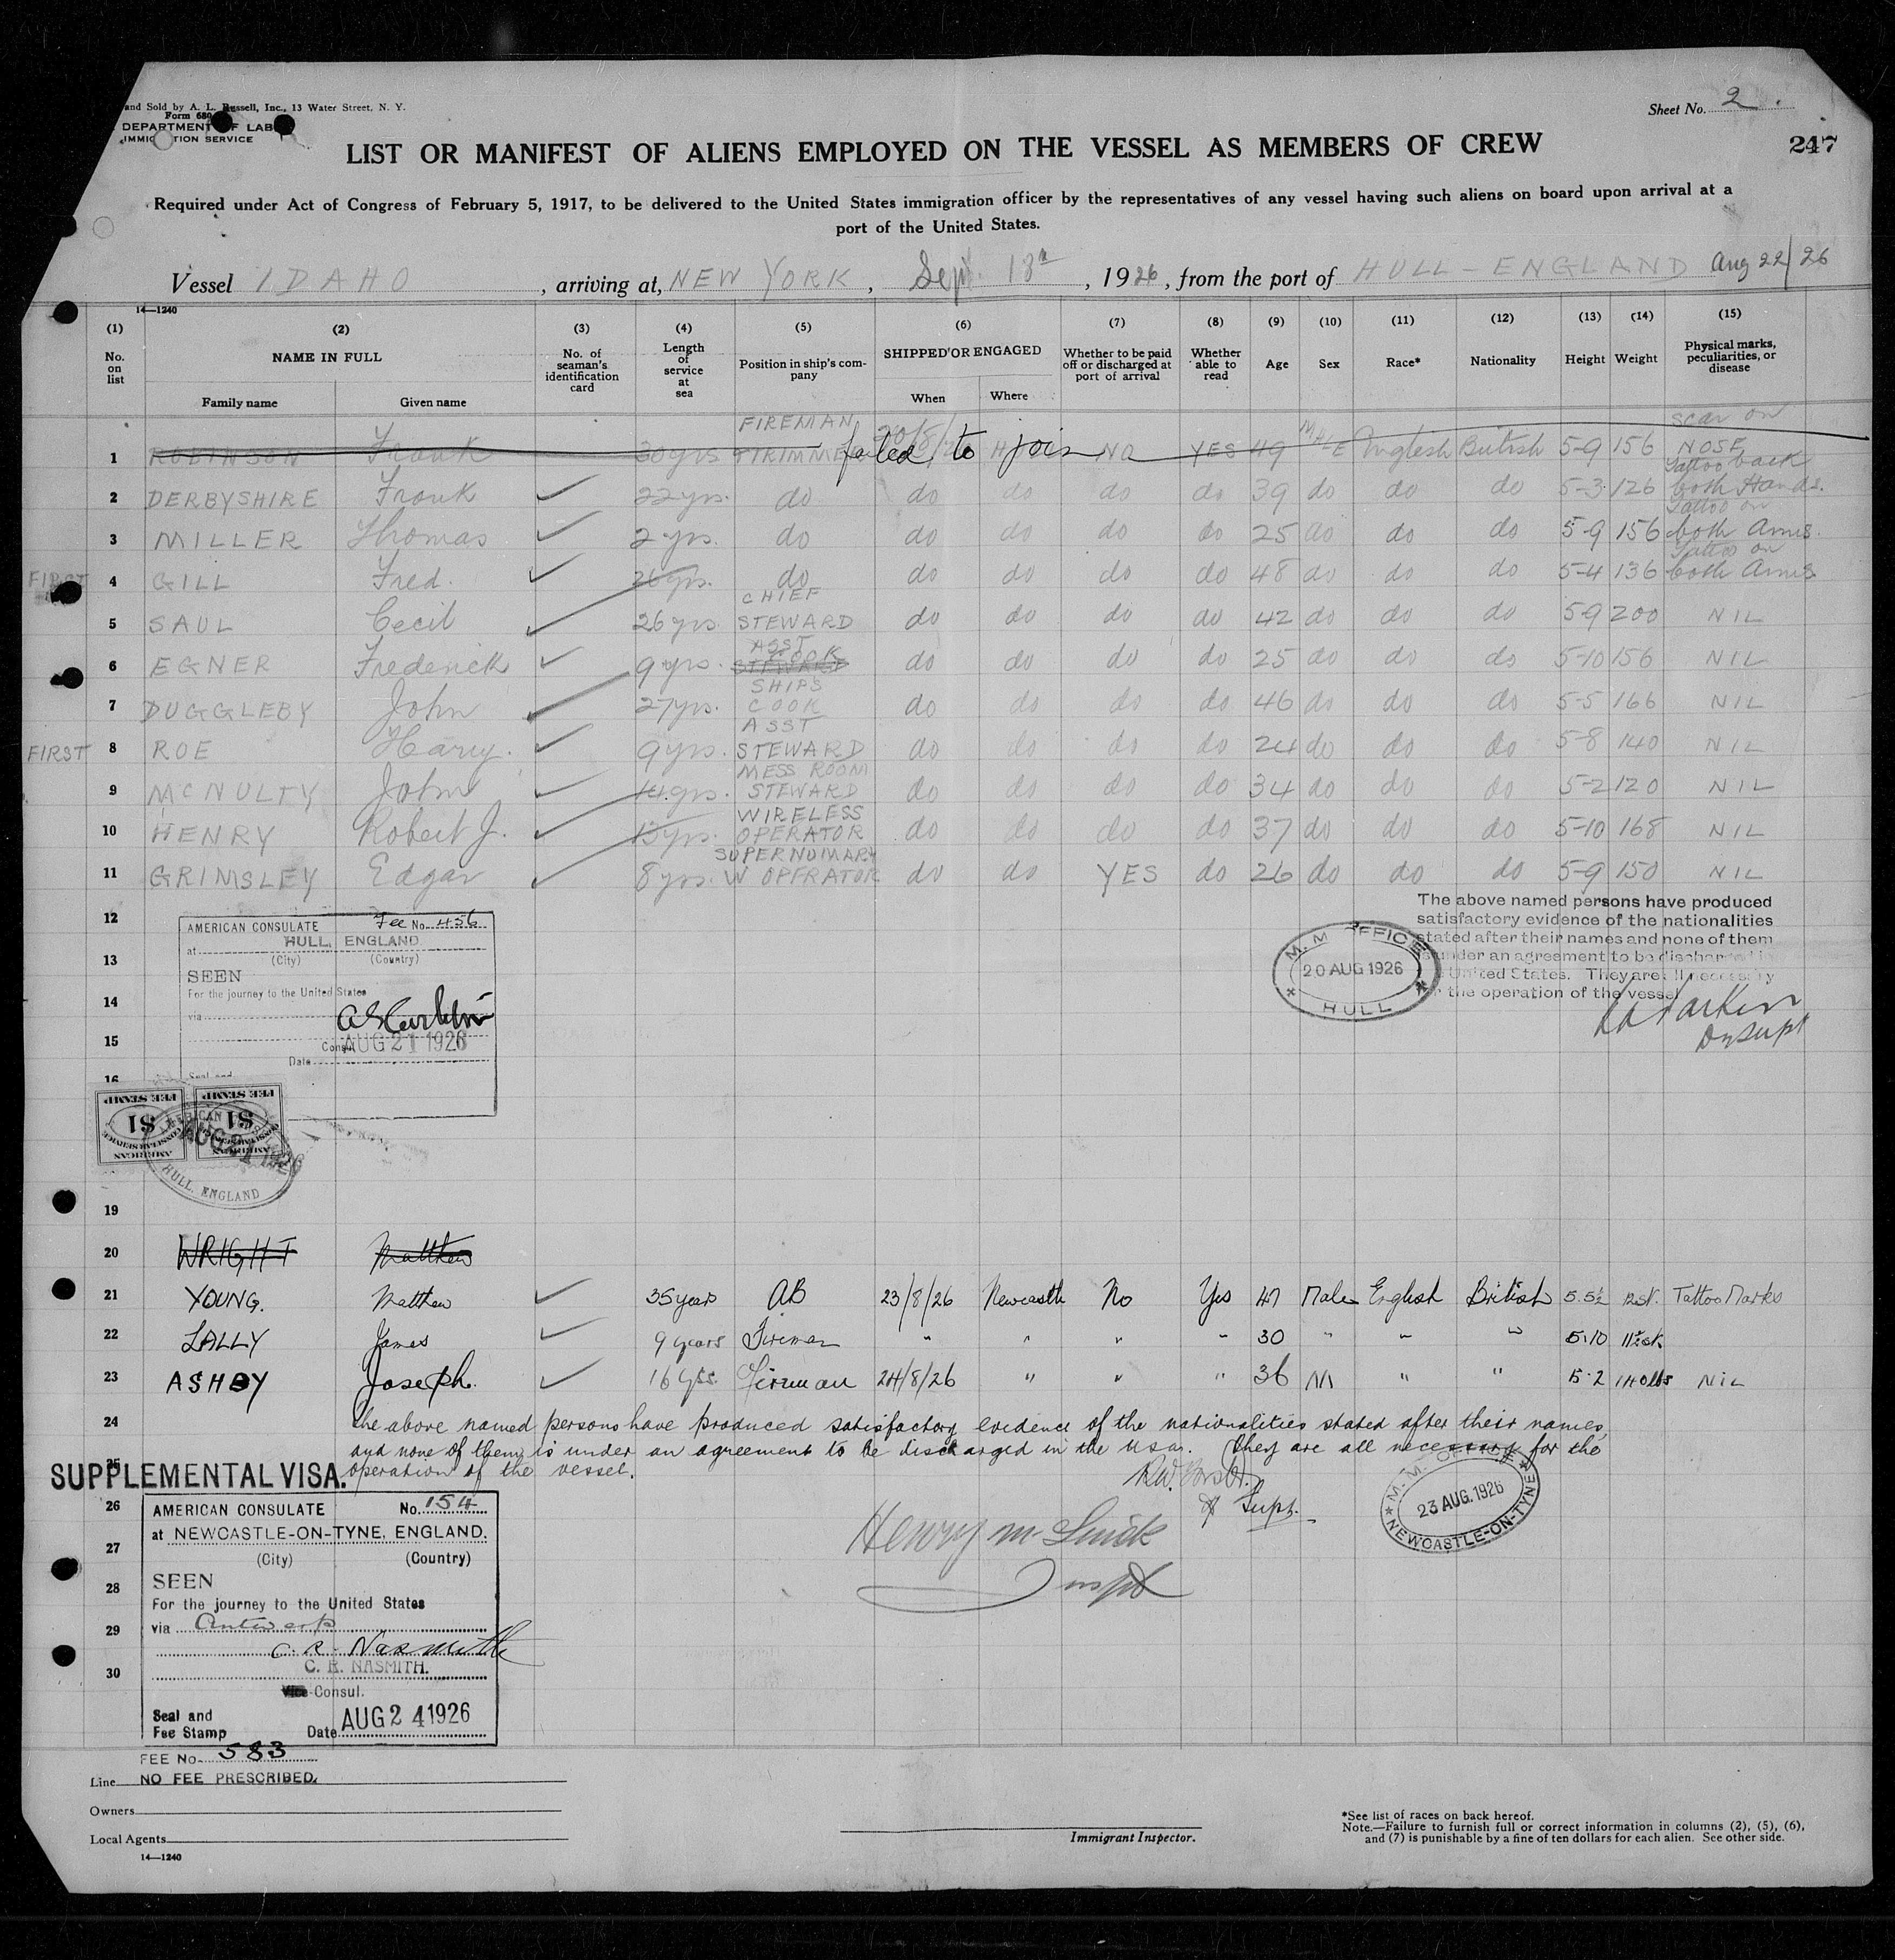 and Sold by A. L. Russell, Inc., 13 Water Street, N. Y.
Form 680
DEPARTMENT OF LABOR
IMMIGRATION SERVICE
Sheet No. 2.
247
LIST OR MANIFEST OF ALIENS EMPLOYED ON THE VESSEL AS MEMBERS OF CREW
Required under Act of Congress of February 5, 1917, to be delivered to the United States immigration officer by the representatives of any vessel having such aliens on board upon arrival at a
port of the United States.
Vessel IDAHO, arriving at, NEW YORK, Sept. 13th, 1926, from the port of HULL - ENGLAND Aug 22/26
14—1240
(1) (2) (3) (4) (5) (6) (7) (8) (9) (10) (11) (12) (13) (14) (15)
No. on list NAME IN FULL Family name Given name No. of seaman's identification card Length of service at sea Position in ship's company SHIPPED OR ENGAGED When Where Whether to be paid off or discharged at port of arrival Whether able to read Age Sex Race* Nationality Height Weight Physical marks, peculiarities, or disease
1 ROBINSON Frank 30 yrs FIREMAN TRIMMER 20/8/26 failed to join NO YES 49 MALE English British 5-9 156 scar on NOSE
2 DERBYSHIRE Frank ✓ 22 yrs. do do do do do 39 do do do 5-3 126 Tattoo back both Hands.
3 MILLER Thomas ✓ 2 yrs. do do do do do 25 do do do 5-9 156 Tattoo on both Arms.
FIRST 4 GILL Fred. ✓ 26 yrs. do do do do do 48 do do do 5-4 136 Tattoo on both Arms
5 SAUL Cecil ✓ 26 yrs. CHIEF STEWARD do do do do 42 do do do 5-9 200 NIL
6 EGNER Frederick ✓ 9 yrs. ASST COOK STEWARD do do do do 25 do do do 5-10 156 NIL
7 DUGGLEBY John ✓ 27 yrs. SHIPS COOK do do do do 46 do do do 5-5 166 NIL
FIRST 8 ROE Harry. ✓ 9 yrs. ASST STEWARD do do do do 24 do do do 5-8 140 NIL
9 McNULTY John ✓ 14 yrs. MESS ROOM STEWARD do do do do 34 do do do 5-2 120 NIL
10 HENRY Robert J. ✓ 13 yrs. WIRELESS OPERATOR do do do do 37 do do do 5-10 168 NIL
11 GRIMSLEY Edgar ✓ 8 yrs. SUPERNUMARY W OPERATOR do do YES do 26 do do do 5-9 150 NIL
12
13
14
15
16
AMERICAN CONSULATE Fee No. 456
at HULL, ENGLAND
(City) (Country)
SEEN
For the journey to the United States
via
Consul
Date AUG 21 1926
Seal and
FEE STAMP FEE STAMP
$1 $1
AMERICAN CONSULAR SERVICE AMERICAN CONSULAR SERVICE
AUG 21 1926
HULL, ENGLAND
M. M. OFFICE
20 AUG 1926
HULL
The above named persons have produced
satisfactory evidence of the nationalities
stated after their names and none of them
is under an agreement to be discharged in
United States. They are all necessary
for the operation of the vessel
Dy Supt
19
20 WRIGHT Matthew
21 YOUNG. Matthew ✓ 35 years AB 23/8/26 Newcastle No Yes 47 Male English British 5.5½ Tattoo Marks
22 LALLY James ✓ 9 years Fireman " " " " 30 " " " 5.10
23 ASHBY Joseph. ✓ 16 yrs. Fireman 24/8/26 " " " 36 M " " 5.2 140 lbs NIL
24 The above named persons have produced satisfactory evidence of the nationalities stated after their names,
and none of them is under an agreement to be discharged in the USA. They are all necessary for the
25 operation of the vessel.
Supt.
M. M. OFFICE
23 AUG. 1926
NEWCASTLE-ON-TYNE
Inspt
SUPPLEMENTAL VISA.
26
27
28
29
30
AMERICAN CONSULATE No. 154
at NEWCASTLE-ON-TYNE, ENGLAND.
(City) (Country)
SEEN
For the journey to the United States
via Antwerp
C. R. Nasmith
C. R. NASMITH.
Vice-Consul.
Seal and
Fee Stamp Date AUG 24 1926
FEE No. 583
Line NO FEE PRESCRIBED.
Owners
Local Agents
14—1240
Immigrant Inspector.
*See list of races on back hereof.
Note.—Failure to furnish full or correct information in columns (2), (5), (6),
and (7) is punishable by a fine of ten dollars for each alien. See other side.